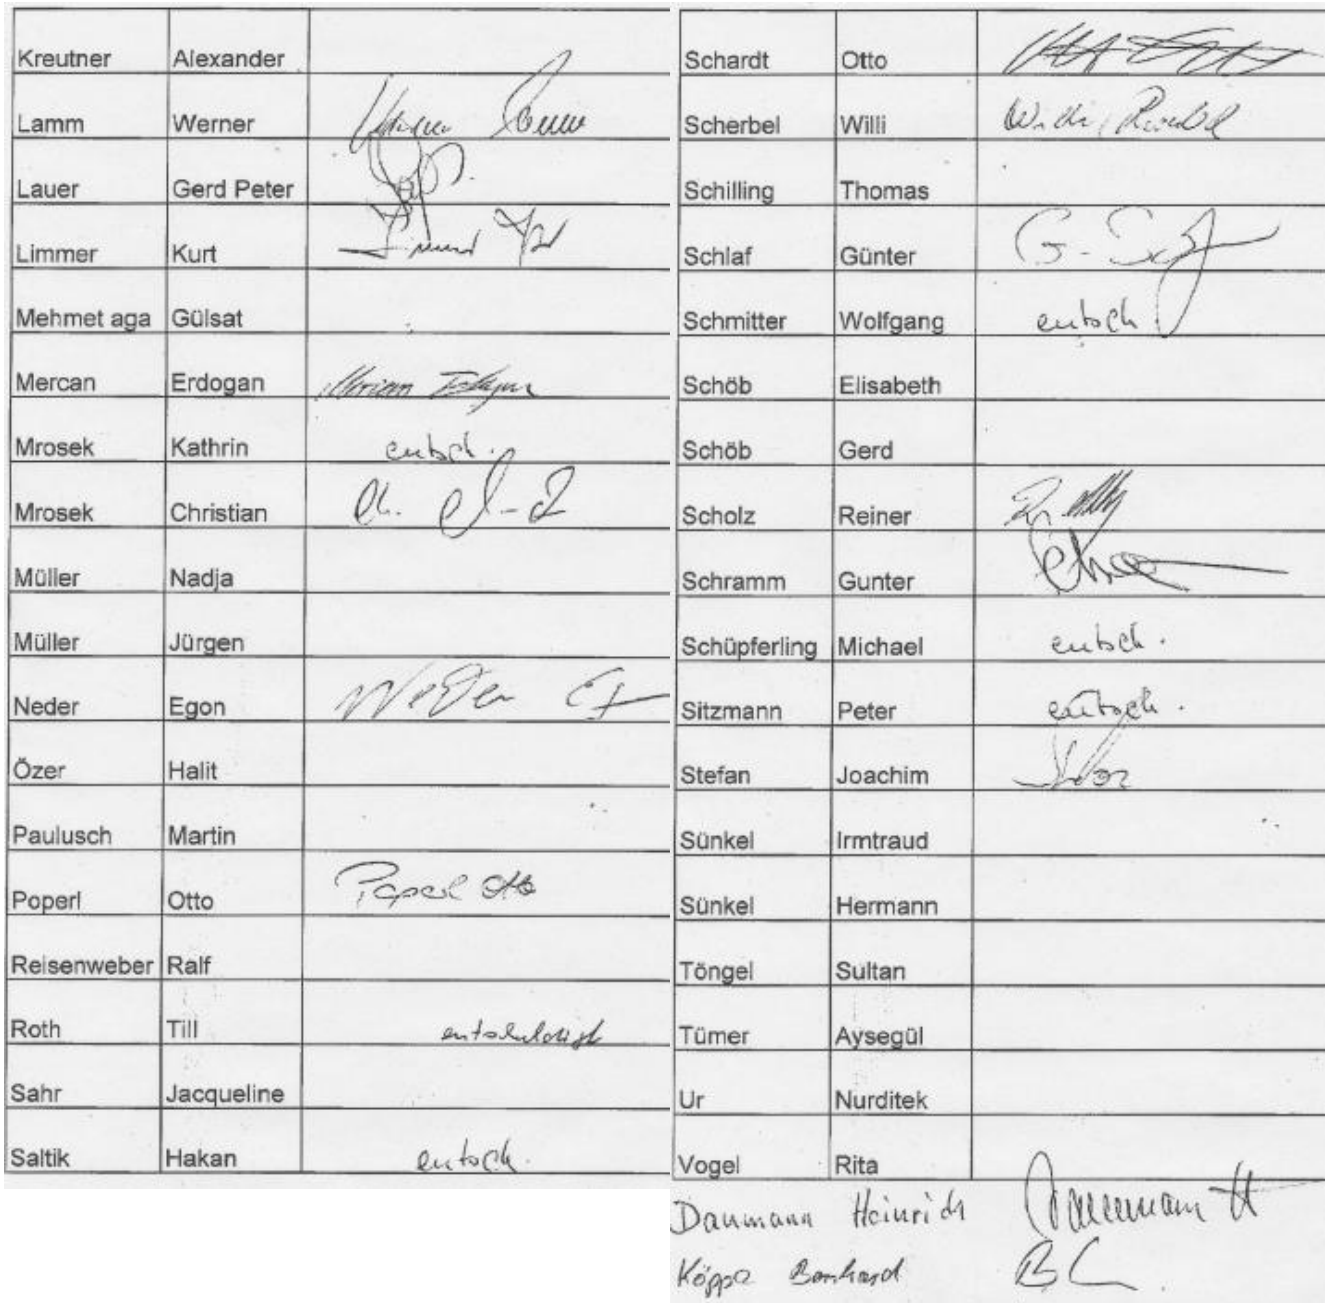 Kreutner Alexander
Lamm Werner
Lauer Gerd Peter
Limmer Kurt
Mehmet aga Gülsat
Mercan Erdogan
Mrosek Kathrin entsch.
Mrosek Christian
Müller Nadja
Müller Jürgen
Neder Egon Neder
Özer Halit
Paulusch Martin
Poperl Otto Poperl Otto
Reisenweber Ralf
Roth Till entschuldigt
Sahr Jacqueline
Saltik Hakan entsch.
Schardt Otto
Scherbel Willi Willi
Schilling Thomas
Schlaf Günter G.
Schmitter Wolfgang entsch
Schöb Elisabeth
Schöb Gerd
Scholz Reiner
Schramm Gunter
Schüpferling Michael entsch.
Sitzmann Peter entsch.
Stefan Joachim
Sünkel Irmtraud
Sünkel Hermann
Töngel Sultan
Tümer Aysegül
Ur Nurditek
Vogel Rita
Daumann Heinrich Daumann H